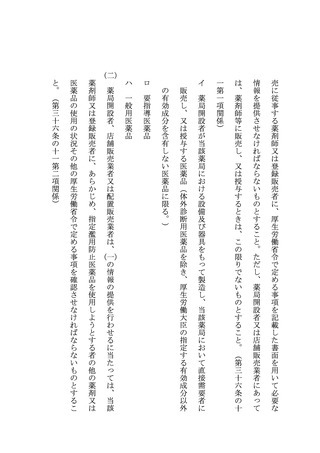 売に従事する薬剤師又は登録販売者に、厚生労働省令で定める事項を記載した書面を用いて必要な
情報を提供させなければならないものとすること。ただし、薬局開設者又は店舗販売業者にあって
は、薬剤師等に販売し、又は授与するときは、この限りでないものとすること。（第三十六条の十
一第一項関係）
イ　薬局開設者が当該薬局における設備及び器具をもって製造し、当該薬局において直接需要者に
販売し、又は授与する医薬品（体外診断用医薬品を除き、厚生労働大臣の指定する有効成分以外
の有効成分を含有しない医薬品に限る。）
ロ　要指導医薬品
ハ　一般用医薬品
㈡　薬局開設者、店舗販売業者又は配置販売業者は、㈠の情報の提供を行わせるに当たっては、当該
薬剤師又は登録販売者に、あらかじめ、指定濫用防止医薬品を使用しようとする者の他の薬剤又は
医薬品の使用の状況その他の厚生労働省令で定める事項を確認させなければならないものとするこ
と。（第三十六条の十一第二項関係）